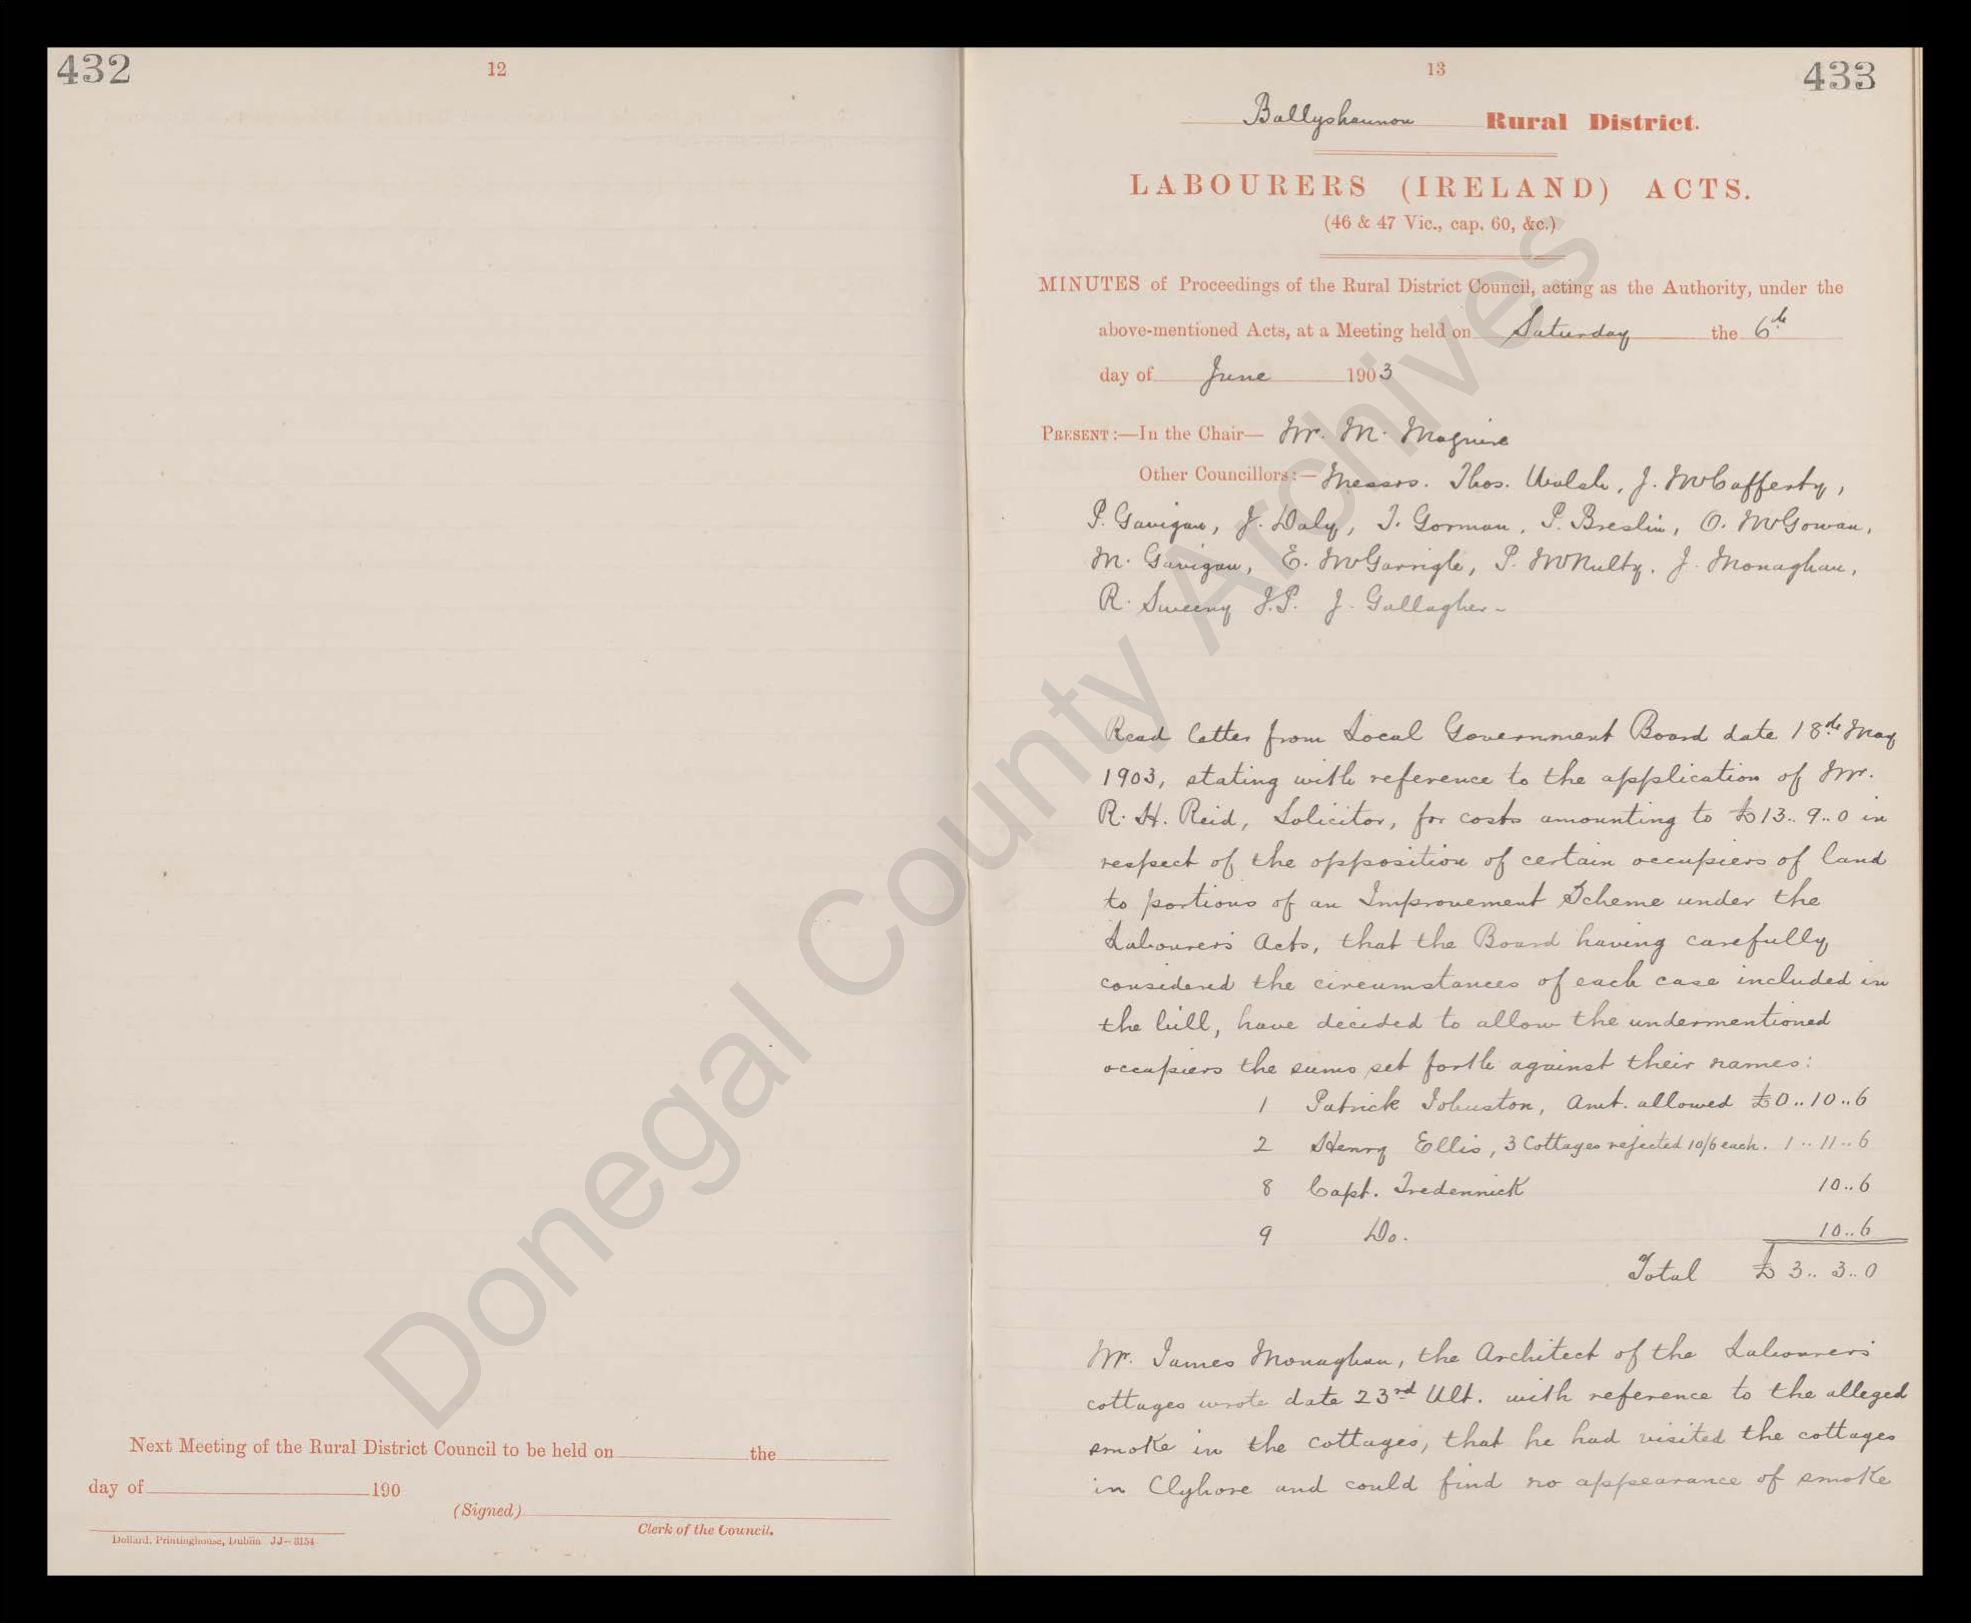 432
12
Next Meeting of the Rural District Council to be held on the
day of 190
(Signed)
Clerk of the Council.
Dollard, Printinghouse, Dublin JJ—3154
13
433
Ballyshannon Rural District.
LABOURERS (IRELAND) ACTS.
(46 & 47 Vic., cap. 60, &c.)
MINUTES of Proceedings of the Rural District Council, acting as the Authority, under the
above-mentioned Acts, at a Meeting held on Saturday the 6th
day of June 1903
PRESENT:—In the Chair— Mr. M. Maguire
Other Councillors:— Messrs. Thos. Walsh, J. McCafferty,
P. Gavigan, J. Daly, T. Gorman, P. Breslin, O. McGowan,
M. Gavigan, E. McGarrigle, P. McNulty. J. Monaghan,
R. Sweeny J.P. J. Gallagher-
Read letter from Local Government Board date 18th May
1903, stating with reference to the application of Mr.
R. H. Reid, Solicitor, for costs amounting to £13..9..0 in
respect of the opposition of certain occupiers of land
to portions of an Improvement Scheme under the
Labourers Acts, that the Board having carefully
considered the circumstances of each case included in
the bill, have decided to allow the undermentioned
occupiers the sums set forth against their names:
1 Patrick Johnston, Amt. allowed £0..10..6
2 Henry Ellis, 3 Cottages rejected 10/6 each. 1..11..6
8 Capt. Tredennick 10..6
9 Do. 10..6
Total £3..3..0
Mr. James Monaghan, the Architect of the Labourers'
cottages wrote date 23rd Ult. with reference to the alleged
smoke in the cottages, that he had visited the cottages
in Clyhore and could find no appearance of smoke
Donegal County Archives